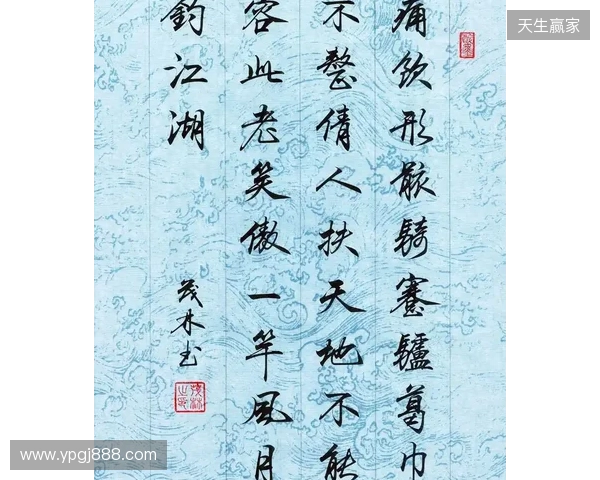 天生赢家
痛饮形骸骑蹇驴葛巾
不整倩人扶天地不能
容此老笑傲一竿风月
钓江湖
茂林书
www.ypgj888.com